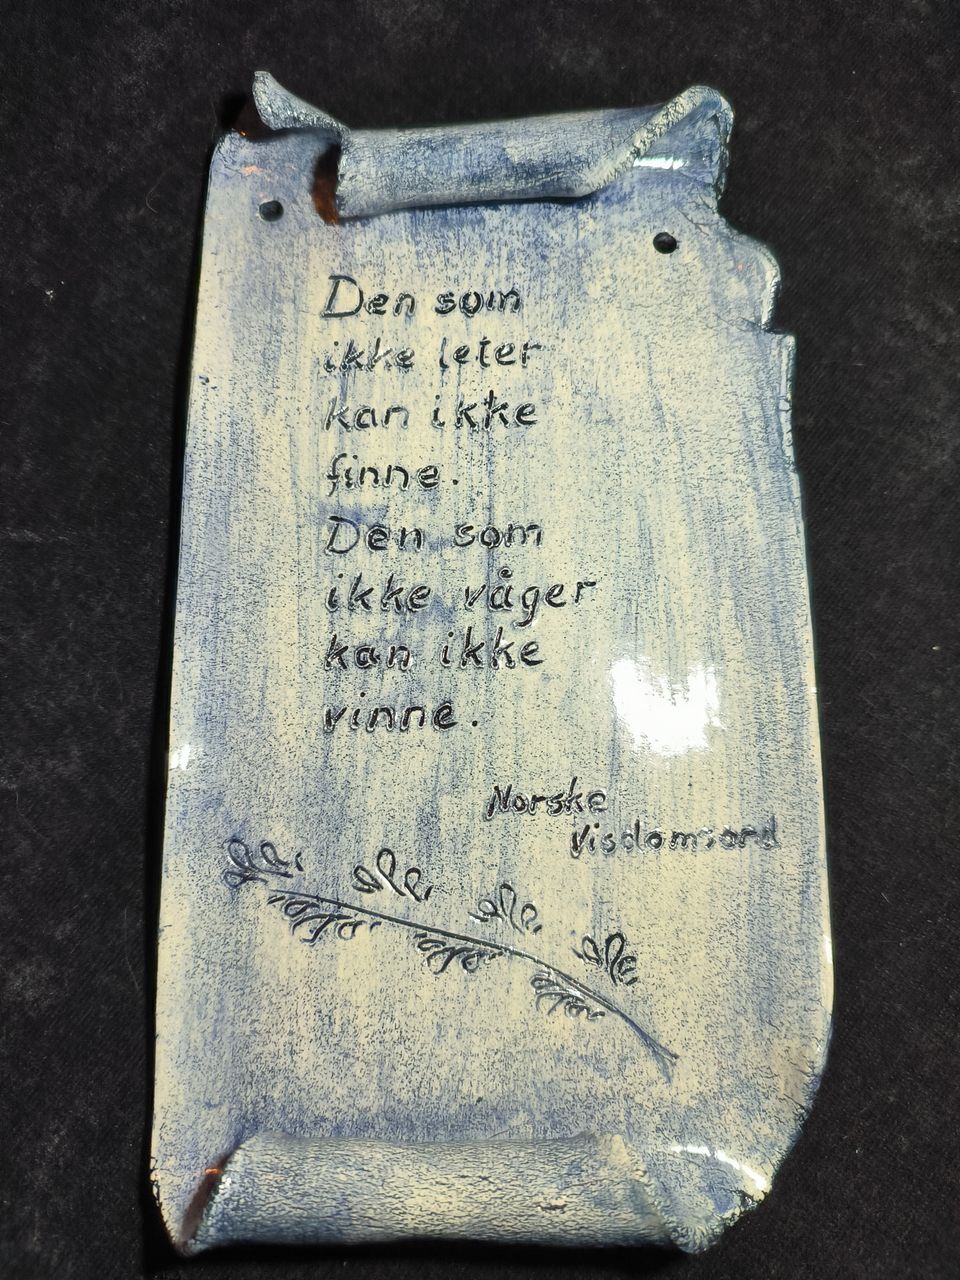 Den som
ikke leter
kan ikke
finne.
Den som
ikke våger
kan ikke
vinne.
Norske
Visdomsord